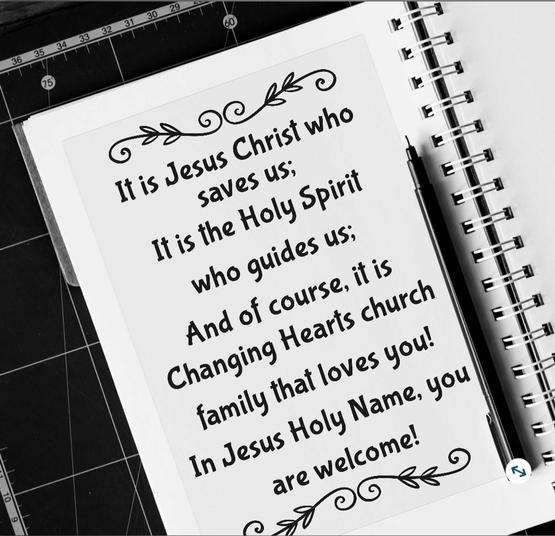 36 35 34 33 32 31 30 29
75
60
It is Jesus Christ who
saves us;
It is the Holy Spirit
who guides us;
And of course, it is
Changing Hearts church
family that loves you!
In Jesus Holy Name, you
are welcome!
10 9